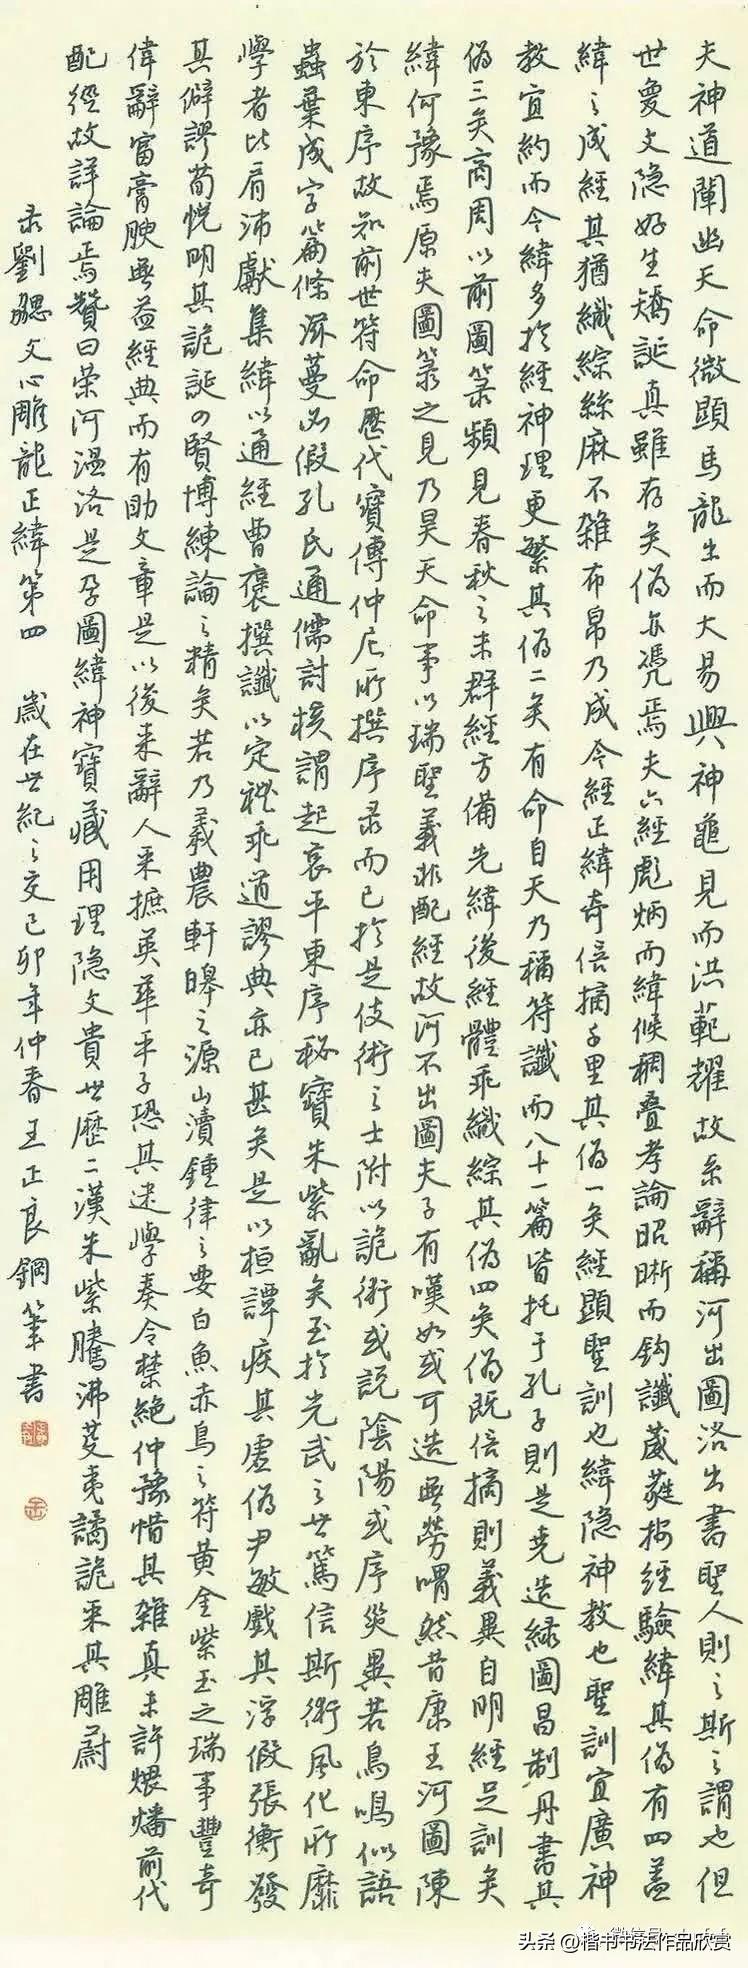 夫神道闡幽天命微顯馬龍出而大易興神龜見而洪範耀故系辭稱河出圖洛出書聖人則之斯之謂也但
世夐文隐好生矯誕真雖存矣偽亦憑焉夫六經彪炳而緯候稠疊孝論昭晰而鈎讖葳蕤按經驗緯其偽有四蓋
緯之成經其猶織綜絲麻不雜布帛乃成今經正緯奇倍摘千里其偽一矣經顯聖訓也緯隐神教也聖訓宜廣神
教宜約而今緯多於經神理更繁其偽二矣有命自天乃稱符讖而八十一篇皆托于孔子則是堯造緑圖昌制丹書其
偽三矣商周以前圖箓頻見春秋之末群經方備先緯後經體乖織綜其偽四矣偽既倍摘則義異自明經足訓矣
緯何豫焉原夫圖箓之見乃昊天命事以瑞聖義非配經故河不出圖夫子有嘆如或可造無勞喟然昔康王河圖陳
於東序故知前世符命歷代寶傳仲尼所撰序录而已於是伎術之士附以詭術或説陰陽或序災異若鳥鳴似語
蟲葉成字篇條滋蔓必假孔氏通儒討核謂起哀平東序秘寶朱紫亂矣至於光武之世篤信斯術風化所靡
學者比肩沛獻集緯以通經曹褒撰讖以定禮乖道謬典亦已甚矣是以桓譚疾其虛偽尹敏戲其浮假張衡發
其僻謬荀悦明其詭誕四賢博練論之精矣若乃羲農軒皞之源山瀆鍾律之要白魚赤烏之符黄金紫玉之瑞事豐奇
偉辭富膏腴無益經典而有助文章是以後來辭人采摭英華平子恐其迷學奏令禁絶仲豫惜其雜真未許煨燔前代
配經故詳論焉贊曰榮河温洛是孕圖緯神寶藏用理隐文貴世歷二漢朱紫騰沸芟夷譎詭采其雕蔚
录劉勰文心雕龍正緯第四 歲在世紀之交己卯年仲春王正良鋼筆書
头条 @楷书书法作品欣赏